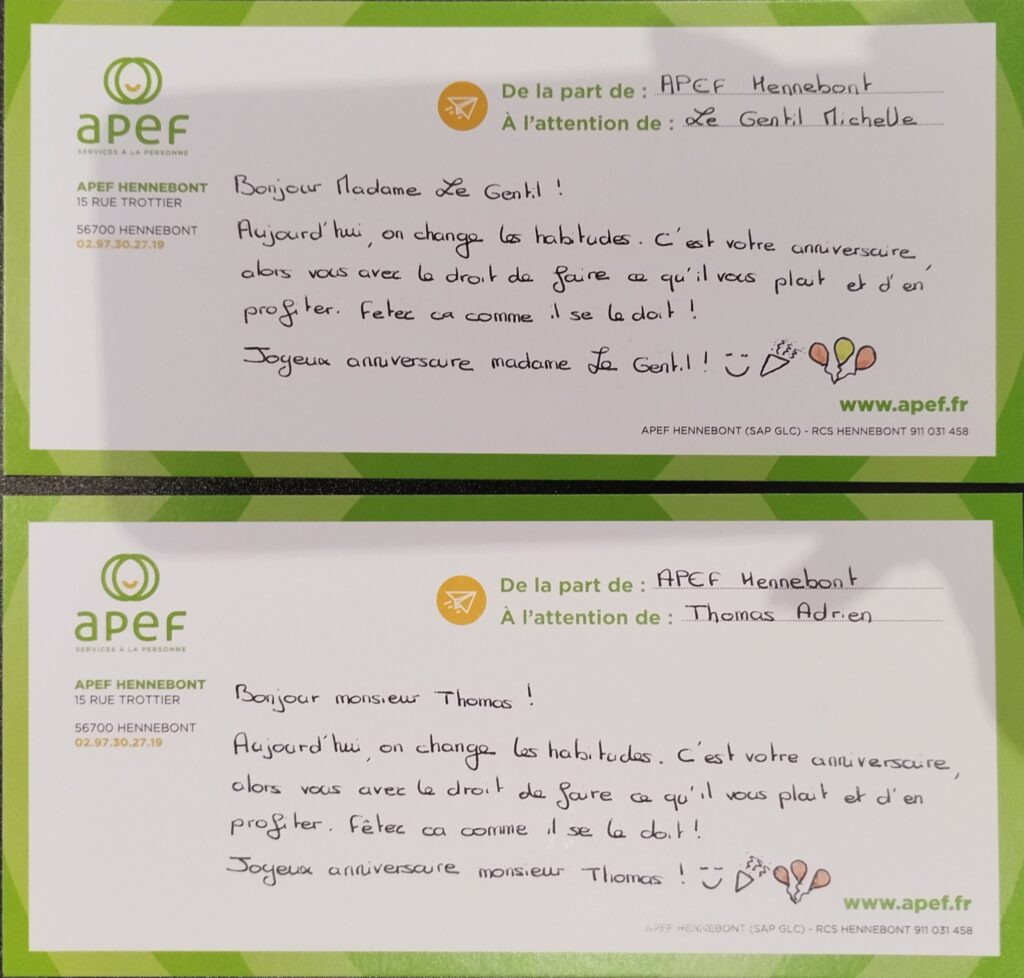 apef
SERVICES À LA PERSONNE
De la part de : APEF Hennebont
À l'attention de : Le Gentil Michelle
APEF HENNEBONT
15 RUE TROTTIER
56700 HENNEBONT
02.97.30.27.19
Bonjour Madame Le Gentil !
Aujourd'hui, on change les habitudes. C'est votre anniversaire,
alors vous avez le droit de faire ce qu'il vous plait et d'en
profiter. Fetez ca comme il se le doit !
Joyeux anniversaire madame Le Gentil !
www.apef.fr
APEF HENNEBONT (SAP GLC) - RCS HENNEBONT 911 031 458
apef
SERVICES À LA PERSONNE
De la part de : APEF Hennebont
À l'attention de : Thomas Adrien
APEF HENNEBONT
15 RUE TROTTIER
56700 HENNEBONT
02.97.30.27.19
Bonjour monsieur Thomas !
Aujourd'hui, on change les habitudes. C'est votre anniversaire,
alors vous avez le droit de faire ce qu'il vous plait et d'en
profiter. Fêtez ca comme il se le doit !
Joyeux anniversaire monsieur Thomas !
www.apef.fr
APEF HENNEBONT (SAP GLC) - RCS HENNEBONT 911 031 458